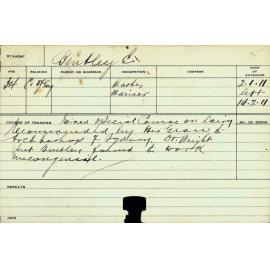 STUDENT
Bentley C.
AGE RELIGION PARENT OR GUARDIAN OCCUPATION ADDRESS DATE OF ENTRANCE
C. of Eng Master Mariner 2.8.11
left
14.2.11
COURSE OF TRAINING Joined Special Course on being No. OF ROOM
recommended by His Grace the
Archbishop of Sydney. Dr. Wright
but Bentley found the work
uncongenial.
RESULTS